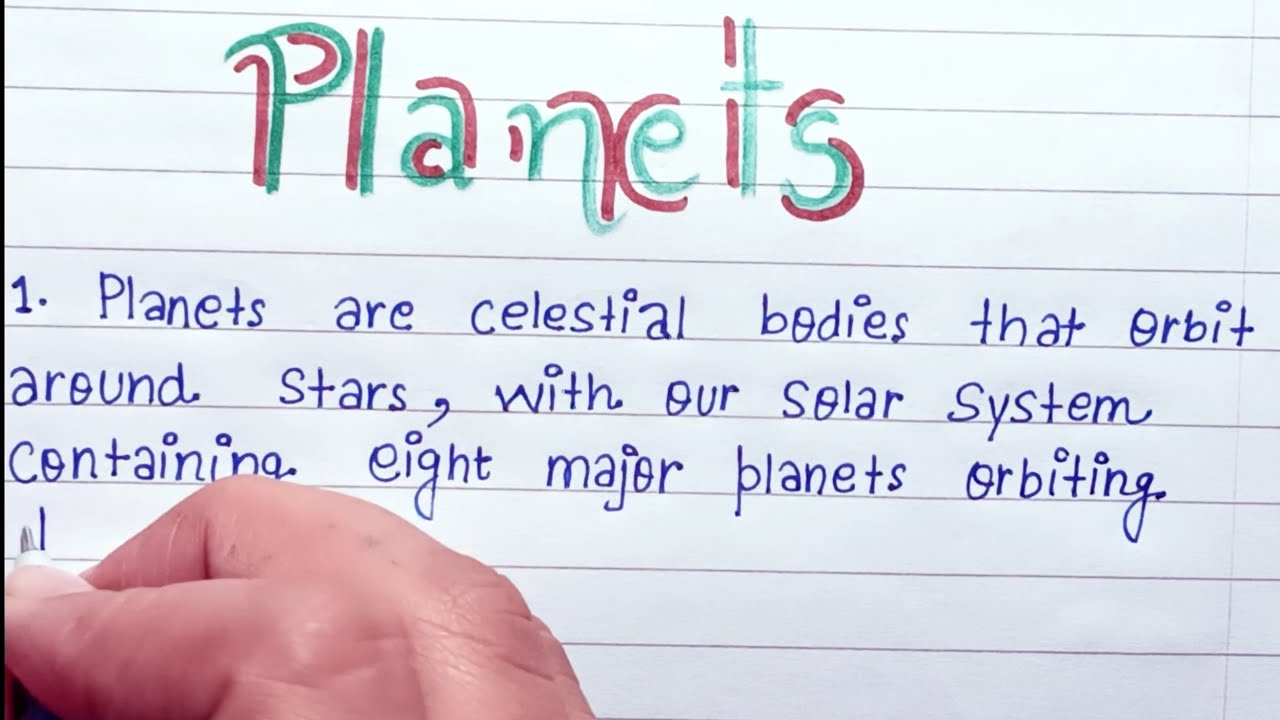 Planets
1. Planets are celestial bodies that orbit
around stars, with our solar system
containing eight major planets orbiting